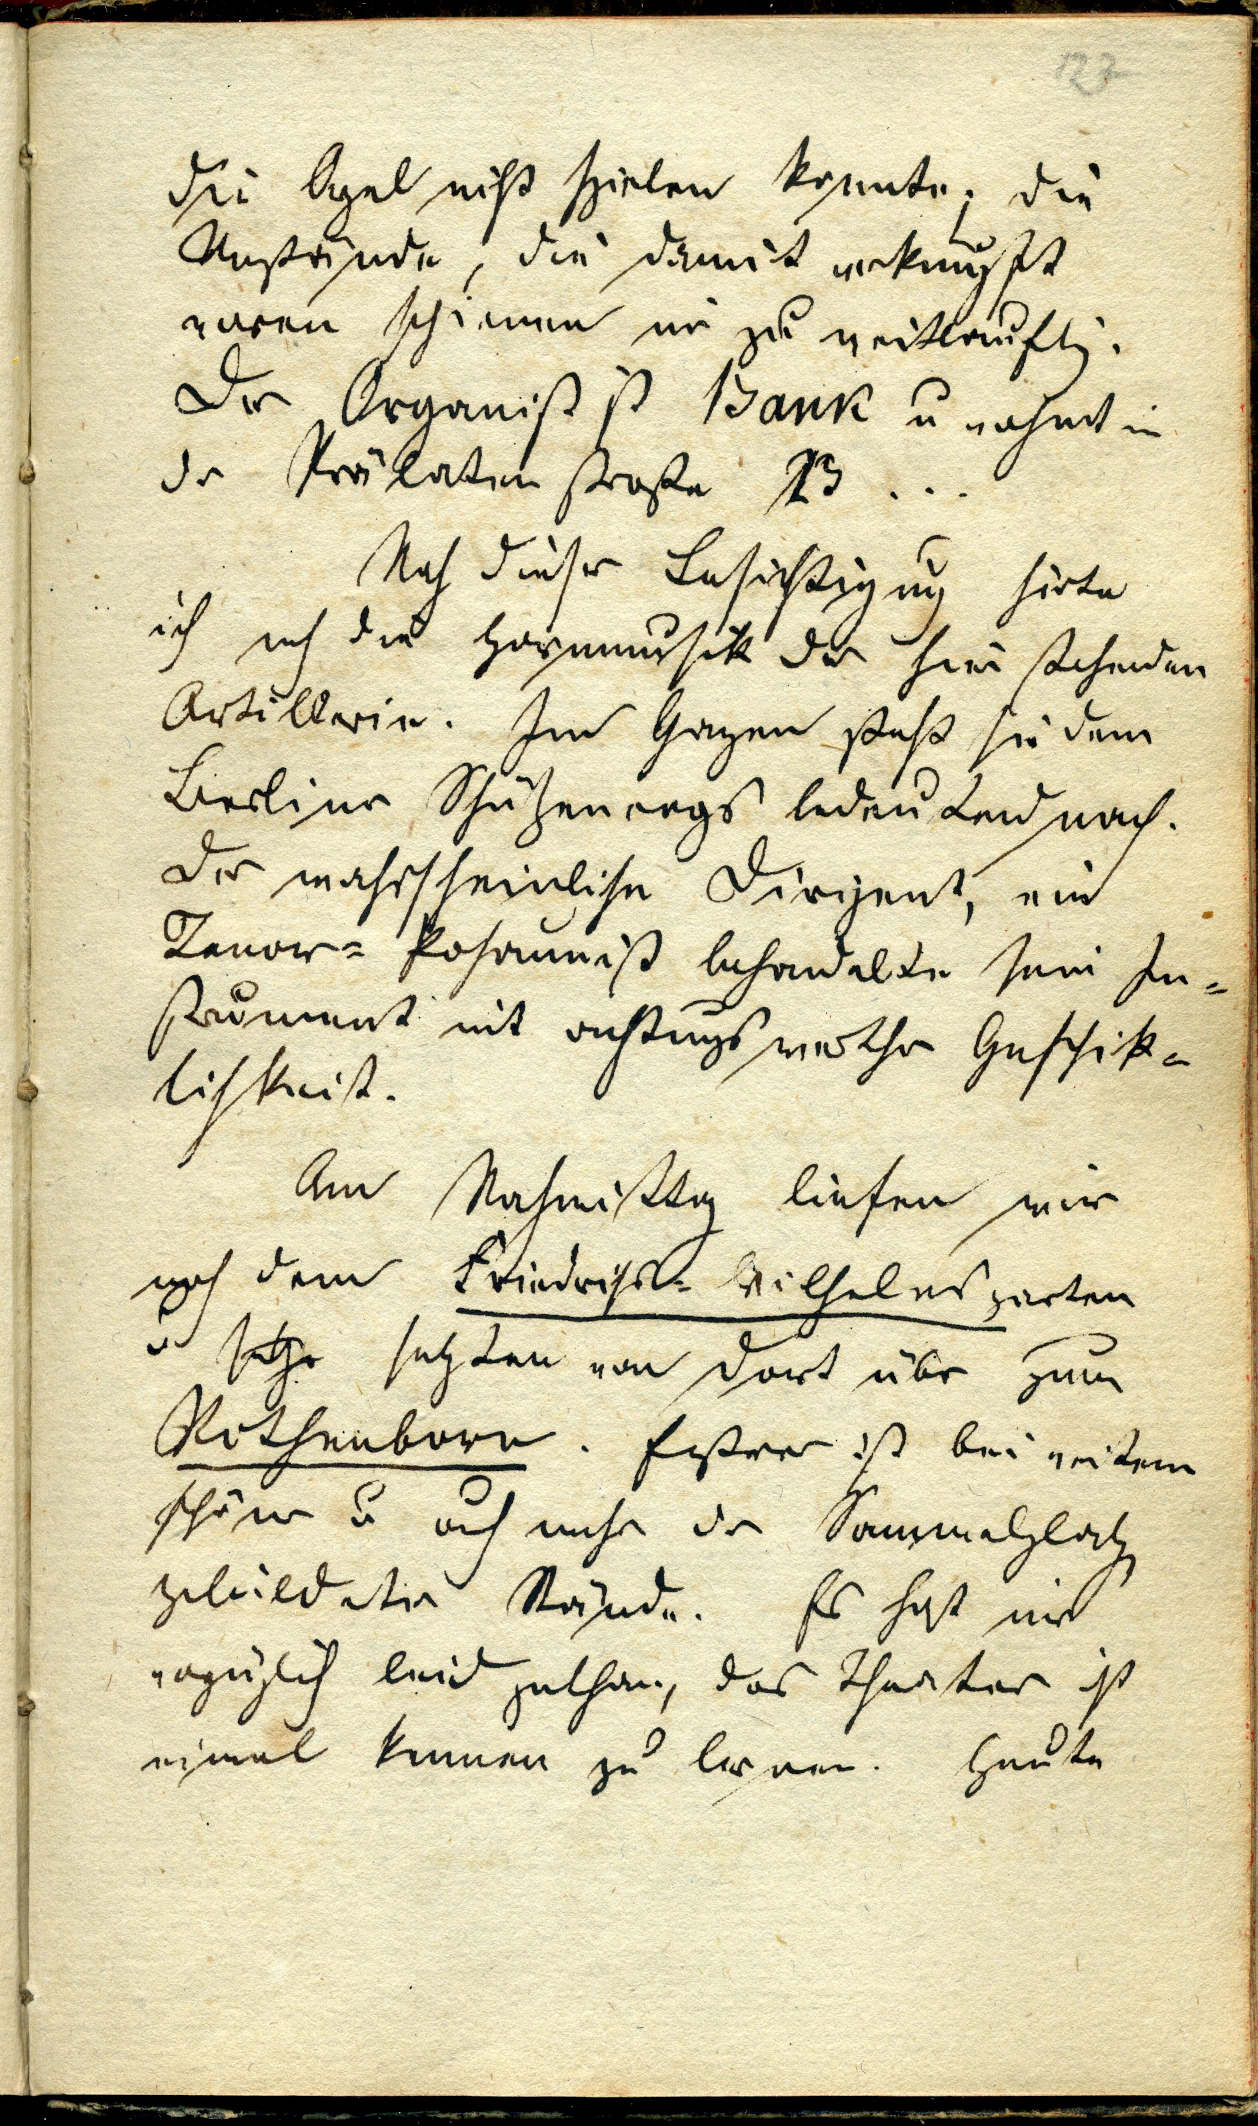 123
die Orgel nicht spielen konnte; die
Umstände, die damit verknüpft
waren schienen mir zu weitläuftig.
Der Organist ist Bank u wohnt in
der Prälatenstraße 23 ...
Nach dieser Besichtigung hörte
ich noch die Hornmusik der hier stehenden
Artillerie. Im Ganzen steht sie dem
Berliner Schützencorps bedeutend nach.
Der wahrscheinliche Dirigent, ein
Tenor= Posaunist behandelte sein In=
strument mit achtungswerther Geschick=
lichkeit.
Am Nachmittag liefen wir
nach dem Friedrich= Wilhelmsgarten
u setzten von dort über zum
Rothenhorn. Erstrer ist bei weitem
schöner u auch mehr der Sammelplatz
gebildeter Stände. Es hat mir
vorzüglich leid gethan, das Theater ist
einmal kennen zu lernen. Heute